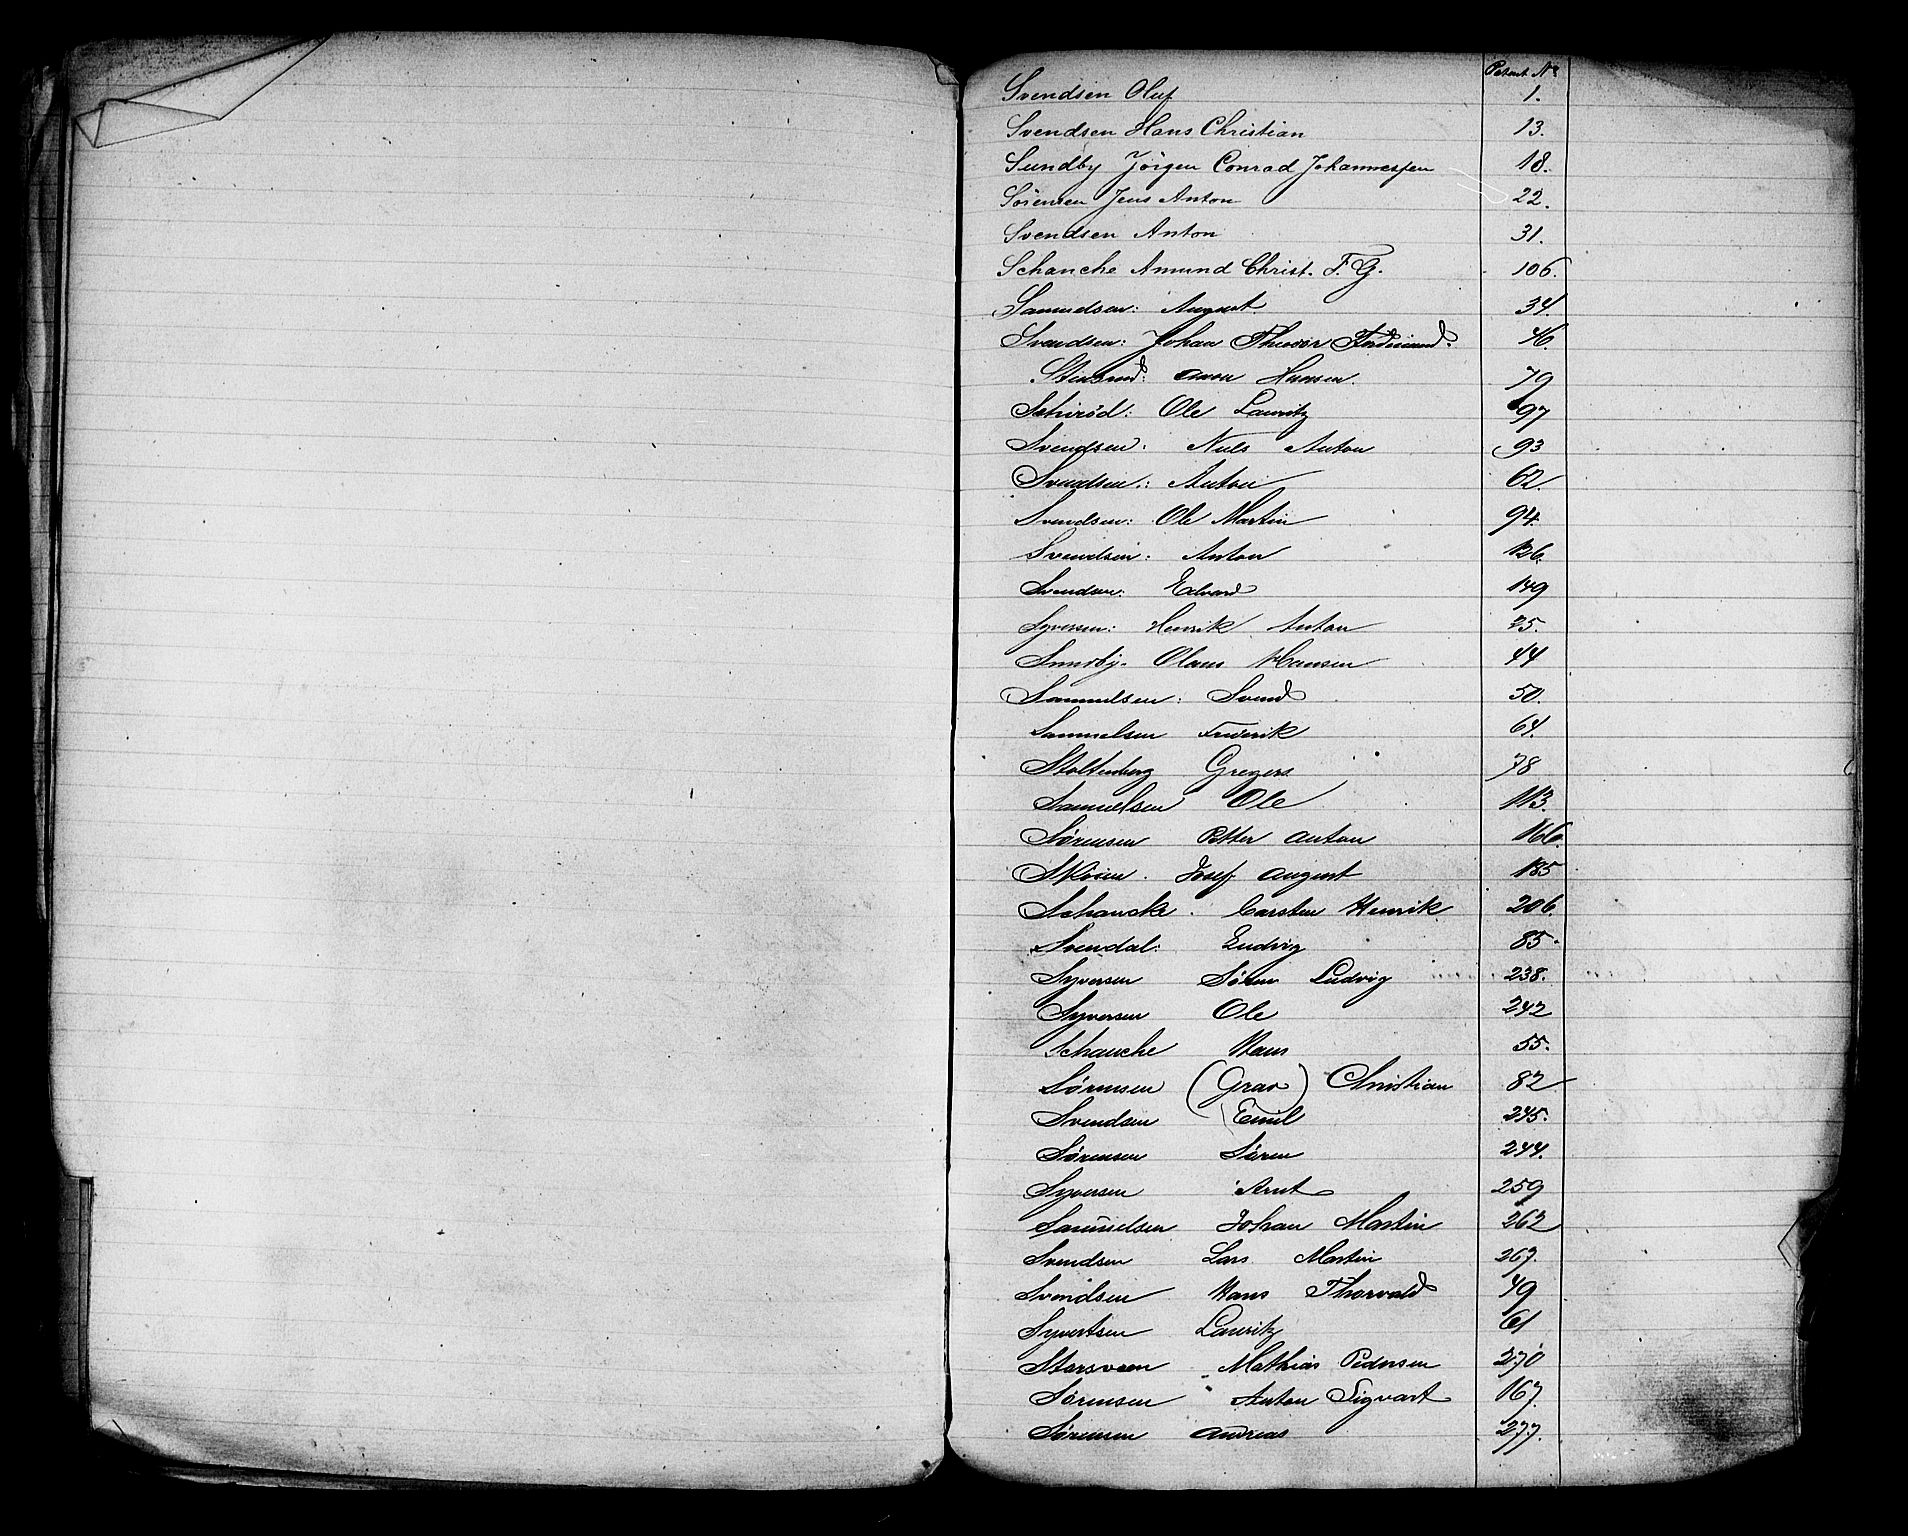 Patent No
Svendsen Oluf 1.
Svendsen Hans Christian 13.
Sundby Jörgen Conrad Johannessen 18.
Sörensen Jens Anton 22.
Svendsen Anton 31.
Schanche Amund Christ. F. G. 106.
Samuelsen: August 34.
Svendsen: Johan Theodor Ferdinand. 46.
Hansen. 79
Ole Lauritz 97
Svendsen: Nils Anton 93
Svendsen: Anton 62.
Svendsen: Ole Martin 94.
Svendsen: Anton 126.
Svendsen: Edvard 149
Syversen: Henrik Anton 25.
Sundby. Olaus Hansen 44
Samuelsen: Svend 50.
Samuelsen Frederik 64.
Stoltenberg Gregers 78
Samuelsen Ole 113.
Sørensen Petter Anton 166.
Skoien. Josef August 185
Schancke. Carsten Henrik 206.
Svendal: Ludvig 85.
Syversen Søren Ludvig 238.
Syversen Ole 242
Schanche Hans 55.
Sørensen (Grav) Christian 82
Svendsen Emil 245.
Sørensen Søren 244.
Syversen Arnt 259
Samuelsen Johan Martin 262
Svendsen Lars Martin 267.
Svendsen Hans Thorvald 49
Syvertsen Lauritz 61
Storsveen Mathias Pedersen 270
Sørensen Anton Sigvart 167.
Sørensen Andreas 277.